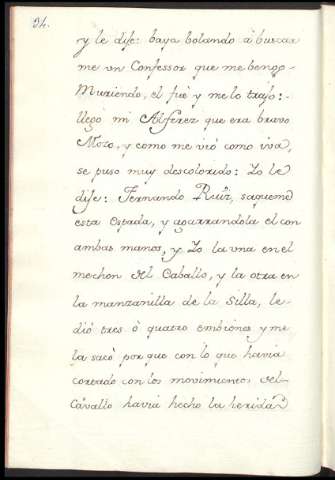 94.
y le dije: baya bolando à buscar
me un Confessor que me bengo
Muriendo, el fuè y me lo trajo:
llegò mi Alferez que era bravo
Mozo, y como me viò como iva,
se puso muy descolorido: Yo le
dije: Fernando Ruiz, saqueme
esta Espada, y agarrandola el con
ambas manos, y Yo la una en el
mechon del Caballo, y la otra en
la manzanilla de la Silla, le
diò tres ò quatro embiones y me
la sacò por que con lo que havia
cortado con los movimientos del
Cavallo havia hecho la herida